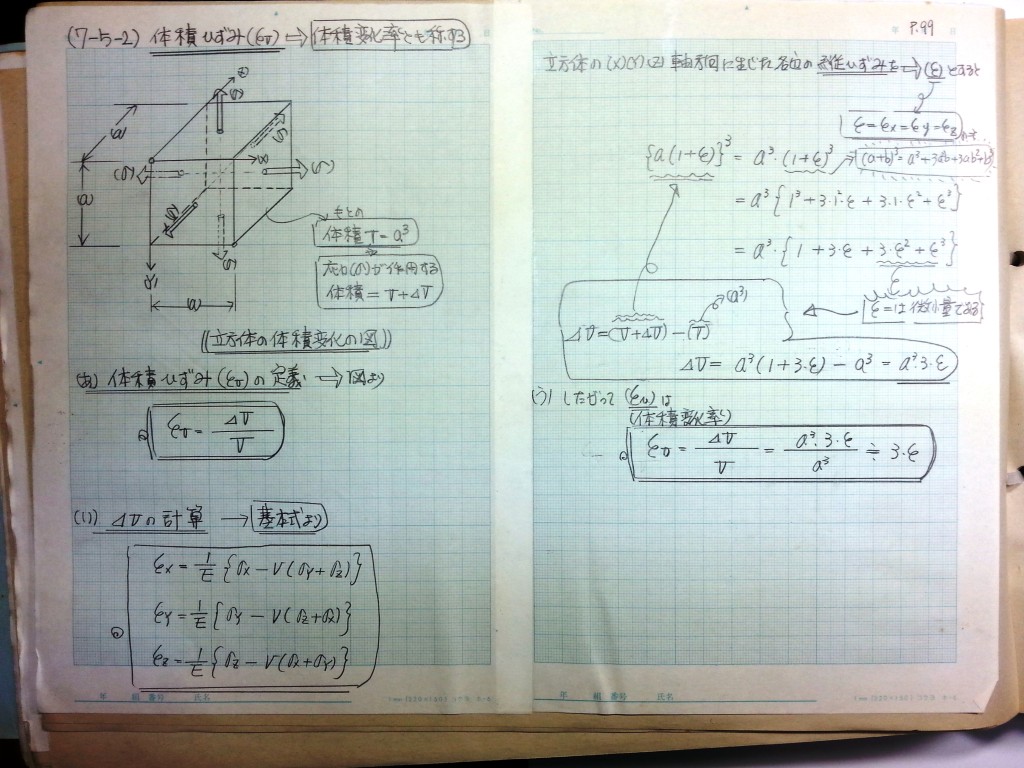 (7-5-2) 体積ひずみ(εv) ⇒ 体積変化率とも称する
(Z)
(σ)
a
(σ)
(X)
(σ)
(σ)
a
(σ)
(σ)
(Y)
a
もとの
体積 V = a³
応力(σ)が作用する
体積 = V+ΔV
((立方体の体積変化の図))
(あ) 体積ひずみ(εv)の定義 ⇒ 図より
εv = ΔV / V
(い) ΔVの計算 → 基本式より
εx = 1/E {σx − ν(σy+σz)}
εy = 1/E {σy − ν(σz+σx)}
εz = 1/E {σz − ν(σx+σy)}
年 組 番号 氏名
P.99
立方体の(X)(Y)(Z)軸方向に生じた各位の ひずみを ⇒ (ε)とすると
ε = εx = εy = εz
{a(1+ε)}³ = a³·(1+ε)³ → (a+b)³ = a³+3a²b+3ab²+b³
= a³{1³+3·1²·ε+3·1·ε²+ε³}
= a³·{1+3·ε+3·ε²+ε³}
ε=は微小量である
(a³)
ΔV = (V+ΔV) − (V)
ΔV = a³(1+3·ε) − a³ = a³·3·ε
(う) したがって (εv)は
(体積変化率)
εv = ΔV / V = a³·3·ε / a³ ≒ 3·ε
年 組 番号 氏名